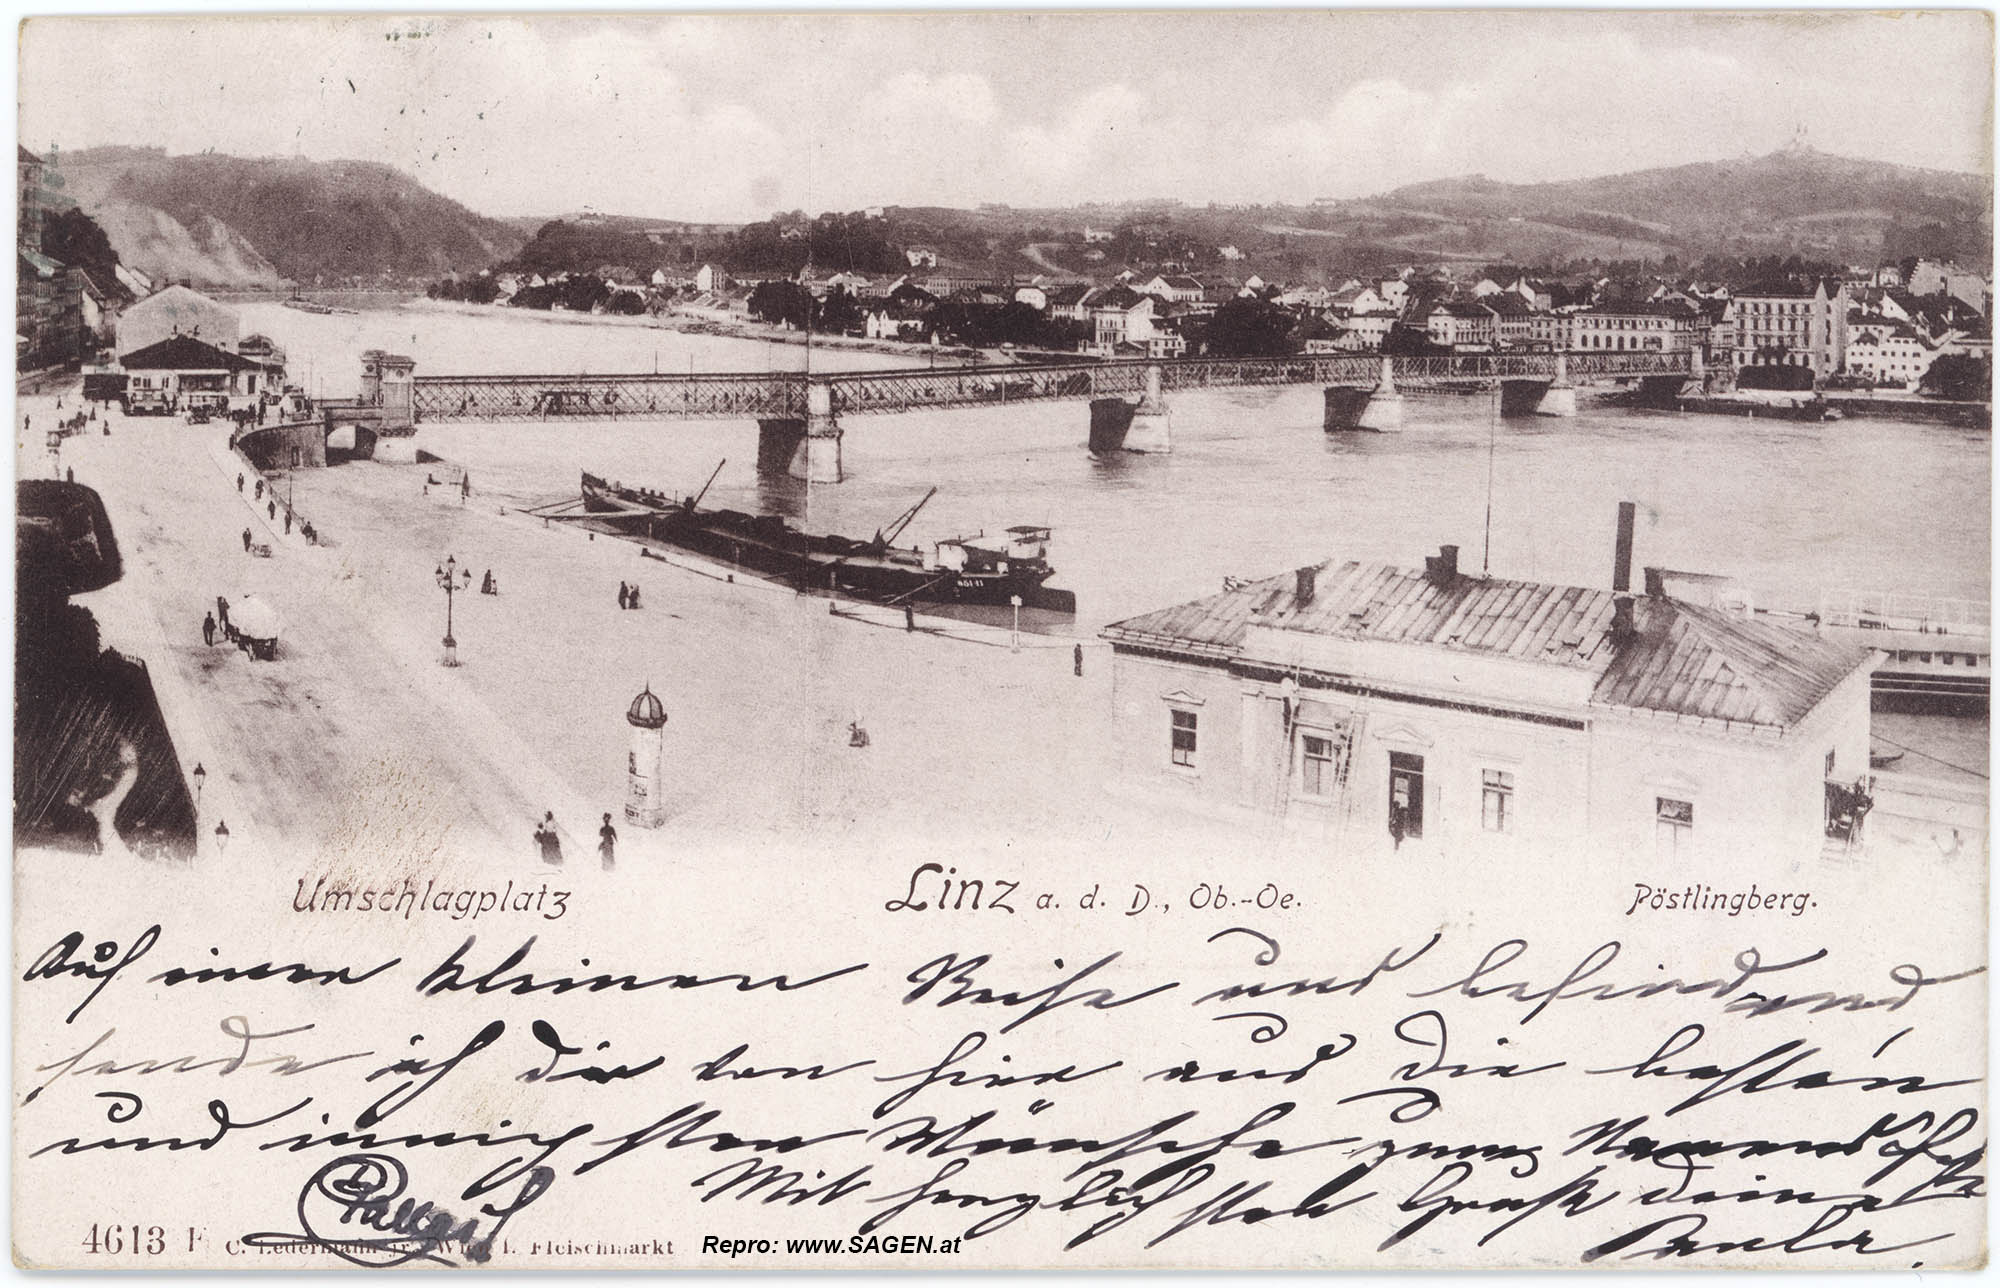 Umschlagplatz
Linz a. d. D., Ob.-Oe.
Pöstlingberg.
Auf einer kleinen Reise und befindend
sende ich dir von hier aus die besten
und innigsten Wünsche zum Namensfeste
Mit herzlichsten Gruß deine
Paula.
4613 F C. Ledermann jr., Wien I. Fleischmarkt
Repro: www.SAGEN.at